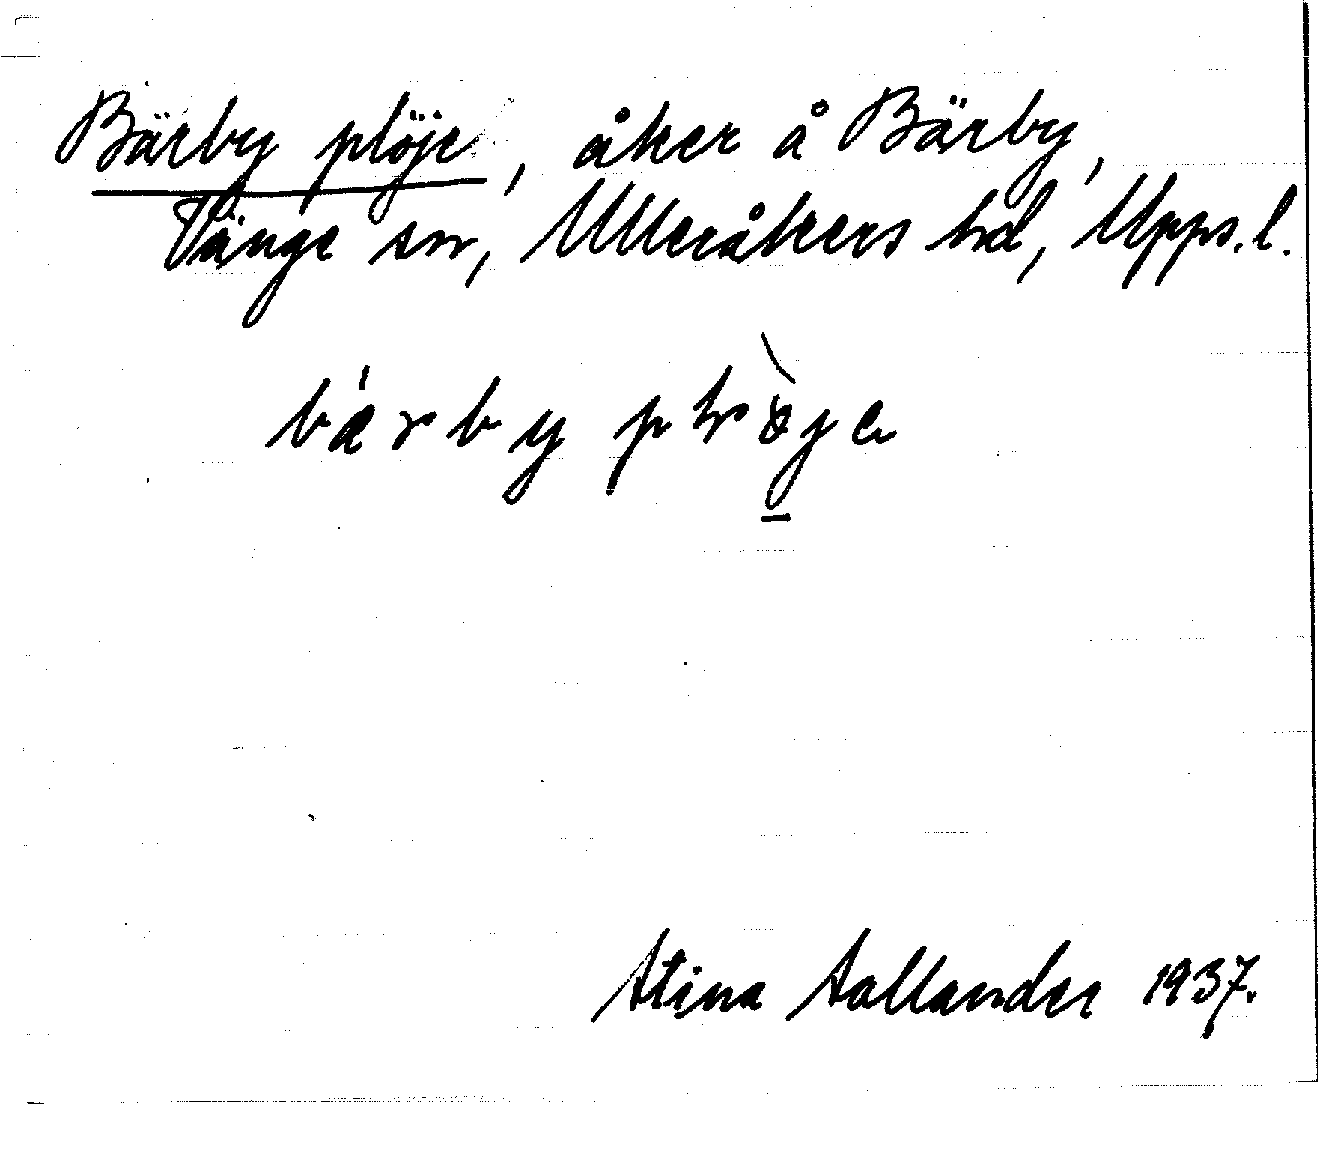 Bärby plöje, åker å Bärby,
Vänge sn, Ulleråkers hd, Upps. l.
Stina Sallander 1937.